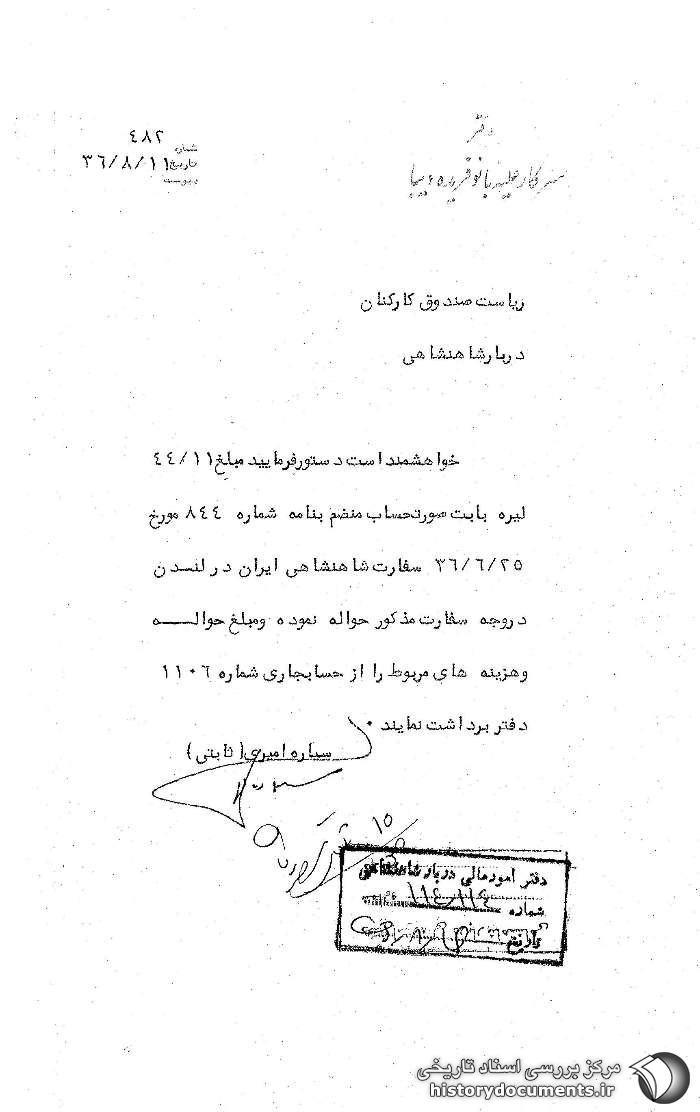 دفتر
سرکار علیه بانو فریده دیبا
شماره ٤٨٢
تاریخ ٣٦/٨/١١
پیوست
ریاست صندوق کارکنان
دربار شاهنشاهی
خواهشمند است دستور فرمایید مبلغ ٤٤/١١
لیره بابت صورتحساب منضم بنامه شماره ٨٤٤ مورخ
٣٦/٦/٢٥ سفارت شاهنشاهی ایران در لنـدن
در وجه سفارت مذکور حواله نموده و مبلغ حوالـــه
و هزینه های مربوط را از حسابجاری شماره ١١٠٦
دفتر برداشت نمایند ٠
ستاره امیری (ثابتی)
١٥
دفتر امور مالی دربار شاهنشاهی
شماره
تاریخ
مرکز بررسی اسناد تاریخی
historydocuments.ir